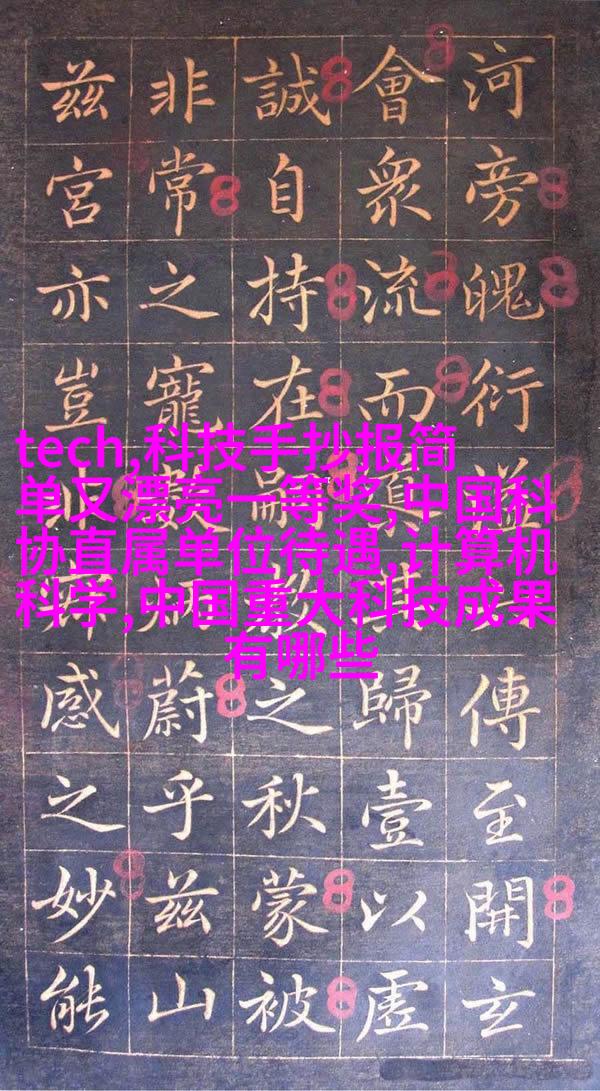 河旁魄衍傳至開玄
會衆流而歸壹以虛
誠自持在嗣教之秋蒙被
非常之寵蔚乎兹山
兹宮亦豈感之妙能
tech,科技手抄报简
单又漂亮一等奖,中国科
协直属单位待遇,计算机
科学,中国重大科技成果
有哪些